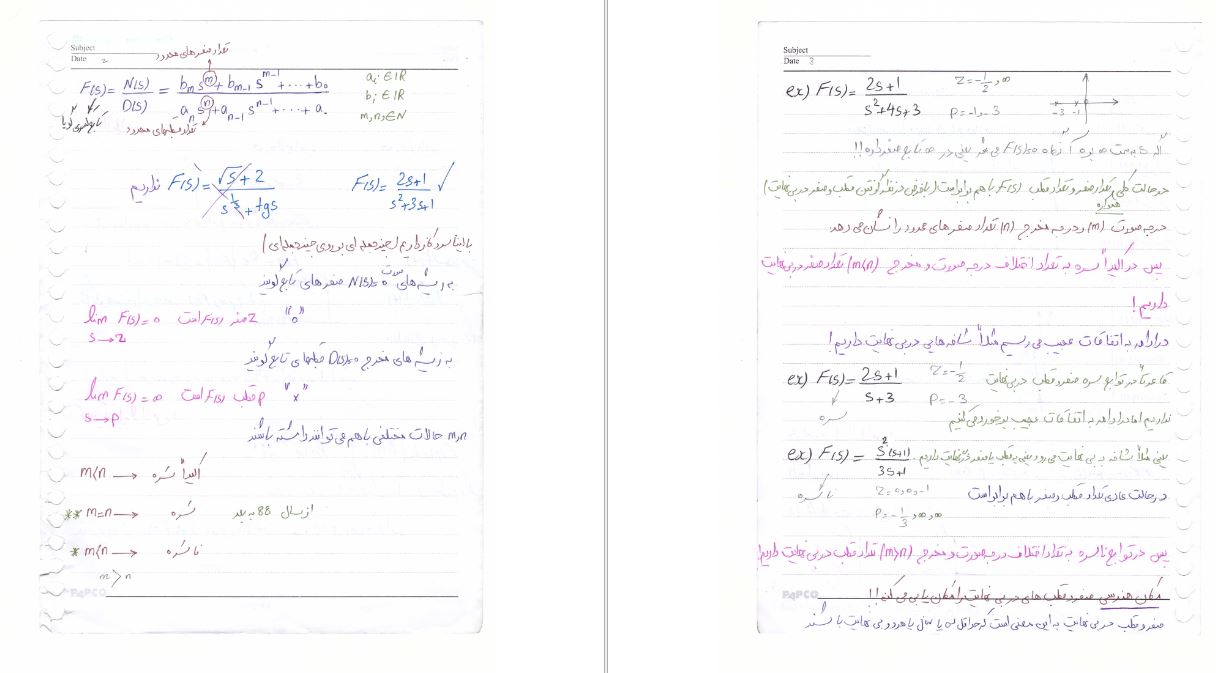 Subject
Date 2
تعداد صفرهای محدود
F(s)= N(s)/D(s) = (bₘ sᵐ + bₘ₋₁ sᵐ⁻¹ + ... + b₀)/(aₙ sⁿ + aₙ₋₁ sⁿ⁻¹ + ... + a₀)
aᵢ ∈ IR
bᵢ ∈ IR
m,n ∈ N
تعداد قطبهای محدود
نداریم F(s)= (√s + 2)/(s^(1/5) + tgs)
F(s)= (2s+1)/(s²+3s+1) ✓
به ریشه های صورت N(s)=0 صفرهای تابع گویند
lim F(s)=0 است F(s) صفر Z "o"
s→Z
به ریشه های مخرج D(s)=0 قطبهای تابع گویند
lim F(s)=∞ است F(s) قطب P "x"
s→P
m,n حالات مختلفی باهم می توانند داشته باشند
m<n → اکیداً سره
** m=n → سره از سال 88 به بعد
* m<n → ناسره
m>n
PAPCO
Subject
Date 3
ex) F(s)= (2s+1)/(s²+4s+3) Z=-1/2,∞ P=-1,-3
-3 -1
اگر s به سمت ∞ برود آنگاه F(s)=0 می شود یعنی در ∞ تابع صفر دارد!!
در حالت کلی تعداد صفر و تعداد قطب F(s) باهم برابر است (با فرض در نظر گرفتن قطب و صفر در بی نهایت)
همواره
درجه صورت (m) و درجه مخرج (n) تعداد صفرهای محدود را نشان می دهد
پس در اکیداً سره به تعداد اختلاف درجه صورت و مخرج (m<n) تعداد صفر در بی نهایت
داریم!
در ادامه به اتفاقات عجیب می رسیم مثلاً شاخه هایی در بی نهایت داریم!
ex) F(s)= (2s+1)/(s+3) Z=-1/2 P=-3 قاعدتاً در توابع سره صفر و قطب در بی نهایت
سره نداریم اما در ادامه به اتفاقات عجیب برخورد می کنیم
ex) F(s)= s²(s+1)/(3s+1) یعنی مثلاً شاخه به بی نهایت می رود یعنی به قطب یا صفر در بی نهایت داریم.
ناسره Z=0,0,-1 در حالت عادی تعداد قطب و صفر باهم برابر است
P=-1/3,∞,∞
پس در توابع ناسره به تعداد اختلاف درجه صورت و مخرج (m>n) تعداد قطب در بی نهایت داریم
مکان هندسی صفر و قطب های در بی نهایت را مکان یابی می کند!!
PAPCO
صفر و قطب در بی نهایت به این معنی است که حداقل یا با هر دو بی نهایت باشند